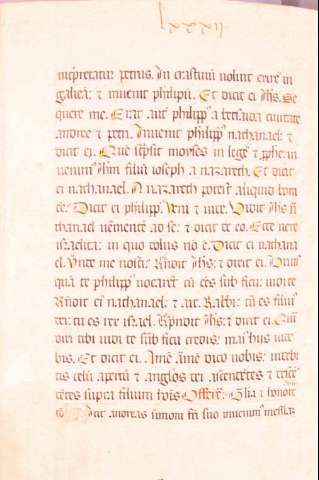 lxxxij
interpretatur petrus. In crastinū voluit exire in
galileā: ⁊ invenit philippū. Et dicit ei Jhs. Se
quere me. Erat aut̄ philipp⁹ a bethsaida civitate
andree ⁊ petri. Invenit philipp⁹ nathanael: ⁊
dicit ei. Quē scpsit moyses in lege ⁊ ꝓphe: in
venim⁹ Jhm filiū ioseph a nazareth. Et dicit
ei nathanael. A nazareth potest aliquid boni
ee: Dicit ei philipp⁹. Veni ⁊ vide. Vidit Jhs n̄
thanael veniēntē ad se: ⁊ dicit de eo. Ecce vere
israelita: in quo dolus nō ē. Dicit ei nathana
el. Unde me nosti: Rn̄dit Jhs: ⁊ dixit ei. Prius
quā te philipp⁹ vocaret: cū eēs sub ficu: vidi te
Rn̄dit ei nathanael: ⁊ ait. Rabbi: tū es filius
dei: tu es rex israel. Rn̄dit Jhs: ⁊ dixit ei. Quia
dixi tibi vidi te sub ficu credis: mai⁹ hiis vide
bis. Et dicit ei. Amē amē dico vobis: videbi
tis celū apertū ⁊ anglos dei ascendētes ⁊ descē
dētes supra filium hois. Offere. Glia ⁊ honore
Dixit andreas simoni fri suo invenim⁹ messiā